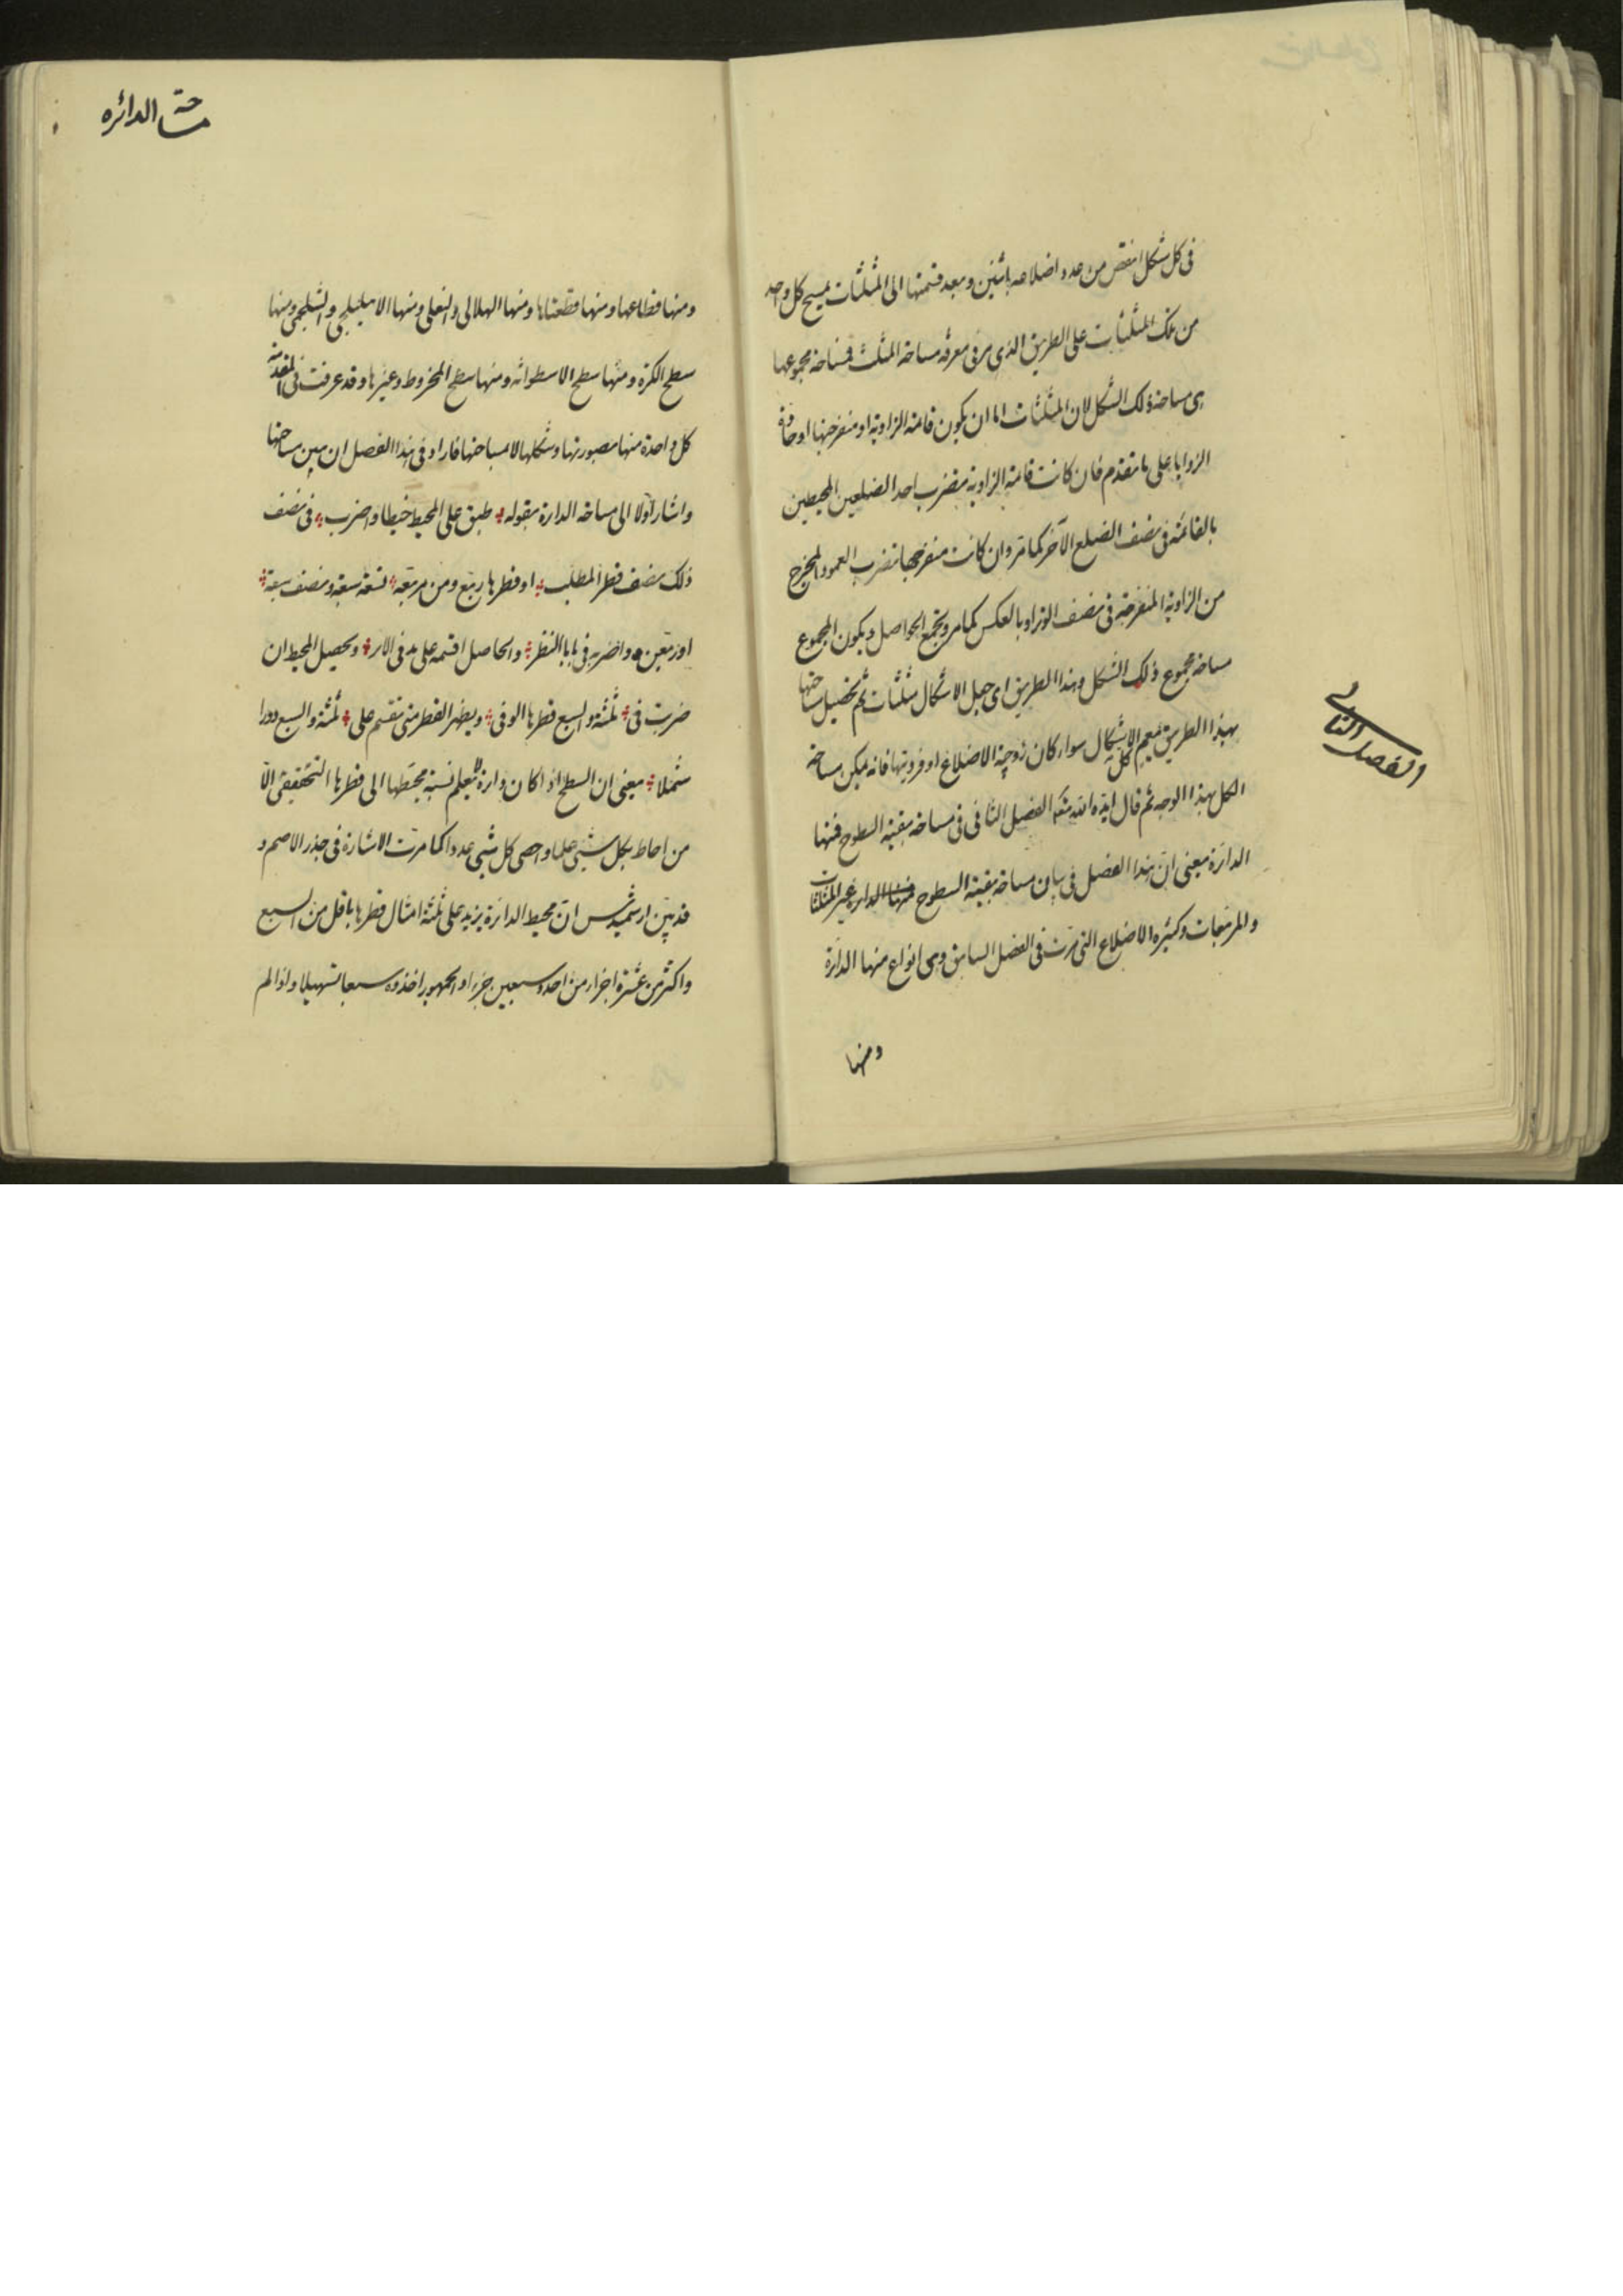 فى كل شكل انقص من عدد اضلاعه باثنين وبعد قسمتها الى المثلثات يمسح كل واحد
من تلك المثلثات على الطريق الذى مر فى معرفة مساحة المثلث فمساحة مجموعها
هى مساحة ذلك الشكل لان المثلثات اما ان يكون قائمة الزاوية او منفرجتها او حادة
الزوايا على ما تقدم فان كانت قائمة الزاوية فتضرب احد الضلعين المحيطين
بالقائمة فى نصف الضلع الآخر كما مر وان كانت منفرجتها تضرب العمود المخرج
من الزاوية المنفرجة فى نصف الوتر او بالعكس كما مر ويجمع الحواصل ويكون المجموع
مساحة مجموع ذلك الشكل وهذا الطريق اى جعل الاشكال مثلثات ثم تحصيل مساحتها
بهذا الطريق يعم كل الاشكال سواء كان زوجية الاضلاع او فرديتها فانه يمكن مساحة
الكل بهذا الوجه ثم قال ايده الله الفصل الثانى فى مساحة بقية السطوح فمنها
الدائرة يعنى ان هذا الفصل فى بيان مساحة بقية السطوح منها الدائرة غير المثلثات
والمربعات وكثيرة الاضلاع التى مرت فى الفصل السابق وهى انواع منها الدائرة
ومنها
الفصل الثانى
مساحة الدائره
ومنها قطاعها ومنها قطعتاها ومنها الهلالى والنعلى ومنها الاهليلجى والشلجمى ومنها
سطح الكرة ومنها سطح الاسطوانه ومنها سطح المخروط وغيرها وقد عرفت فى المقدمة
كل واحدة منها بصورتها وشكلها لا مساحتها فاراد فى هذا الفصل ان يبين مساحتها
واشار اولا الى مساحة الدائرة بقوله طبق على المحيط خيطا واضرب فى نصف
ذلك نصف قطر المطلب او قطرها ربع ومن مربعه تسعة سبعة ونصف سبعة
او ربعين واضربه فى يا بالنظر والحاصل اقسمه على يد فى الاثر ويحصل المحيط ان
ضربت فى ثلثة والسبع قطرها الوفى ويظهر القطر متى تقسم على ثلثة والسبع دورا
شملا يعنى ان السطح اذا كان دائرة لا يعلم نسبة محيطها الى قطرها التحقيقى الا
من احاط بكل شيئ علما واحصى كل شيئ عددا كما مرت الاشارة فى جذر الاصم و
قد بين ارشميدس ان محيط الدائرة يزيد على ثلثة امثال قطرها باقل من السبع
واكثر من عشرة اجزاء من احد وسبعين جزءا والجمهور اخذوه سبعا تسهيلا واذا لم